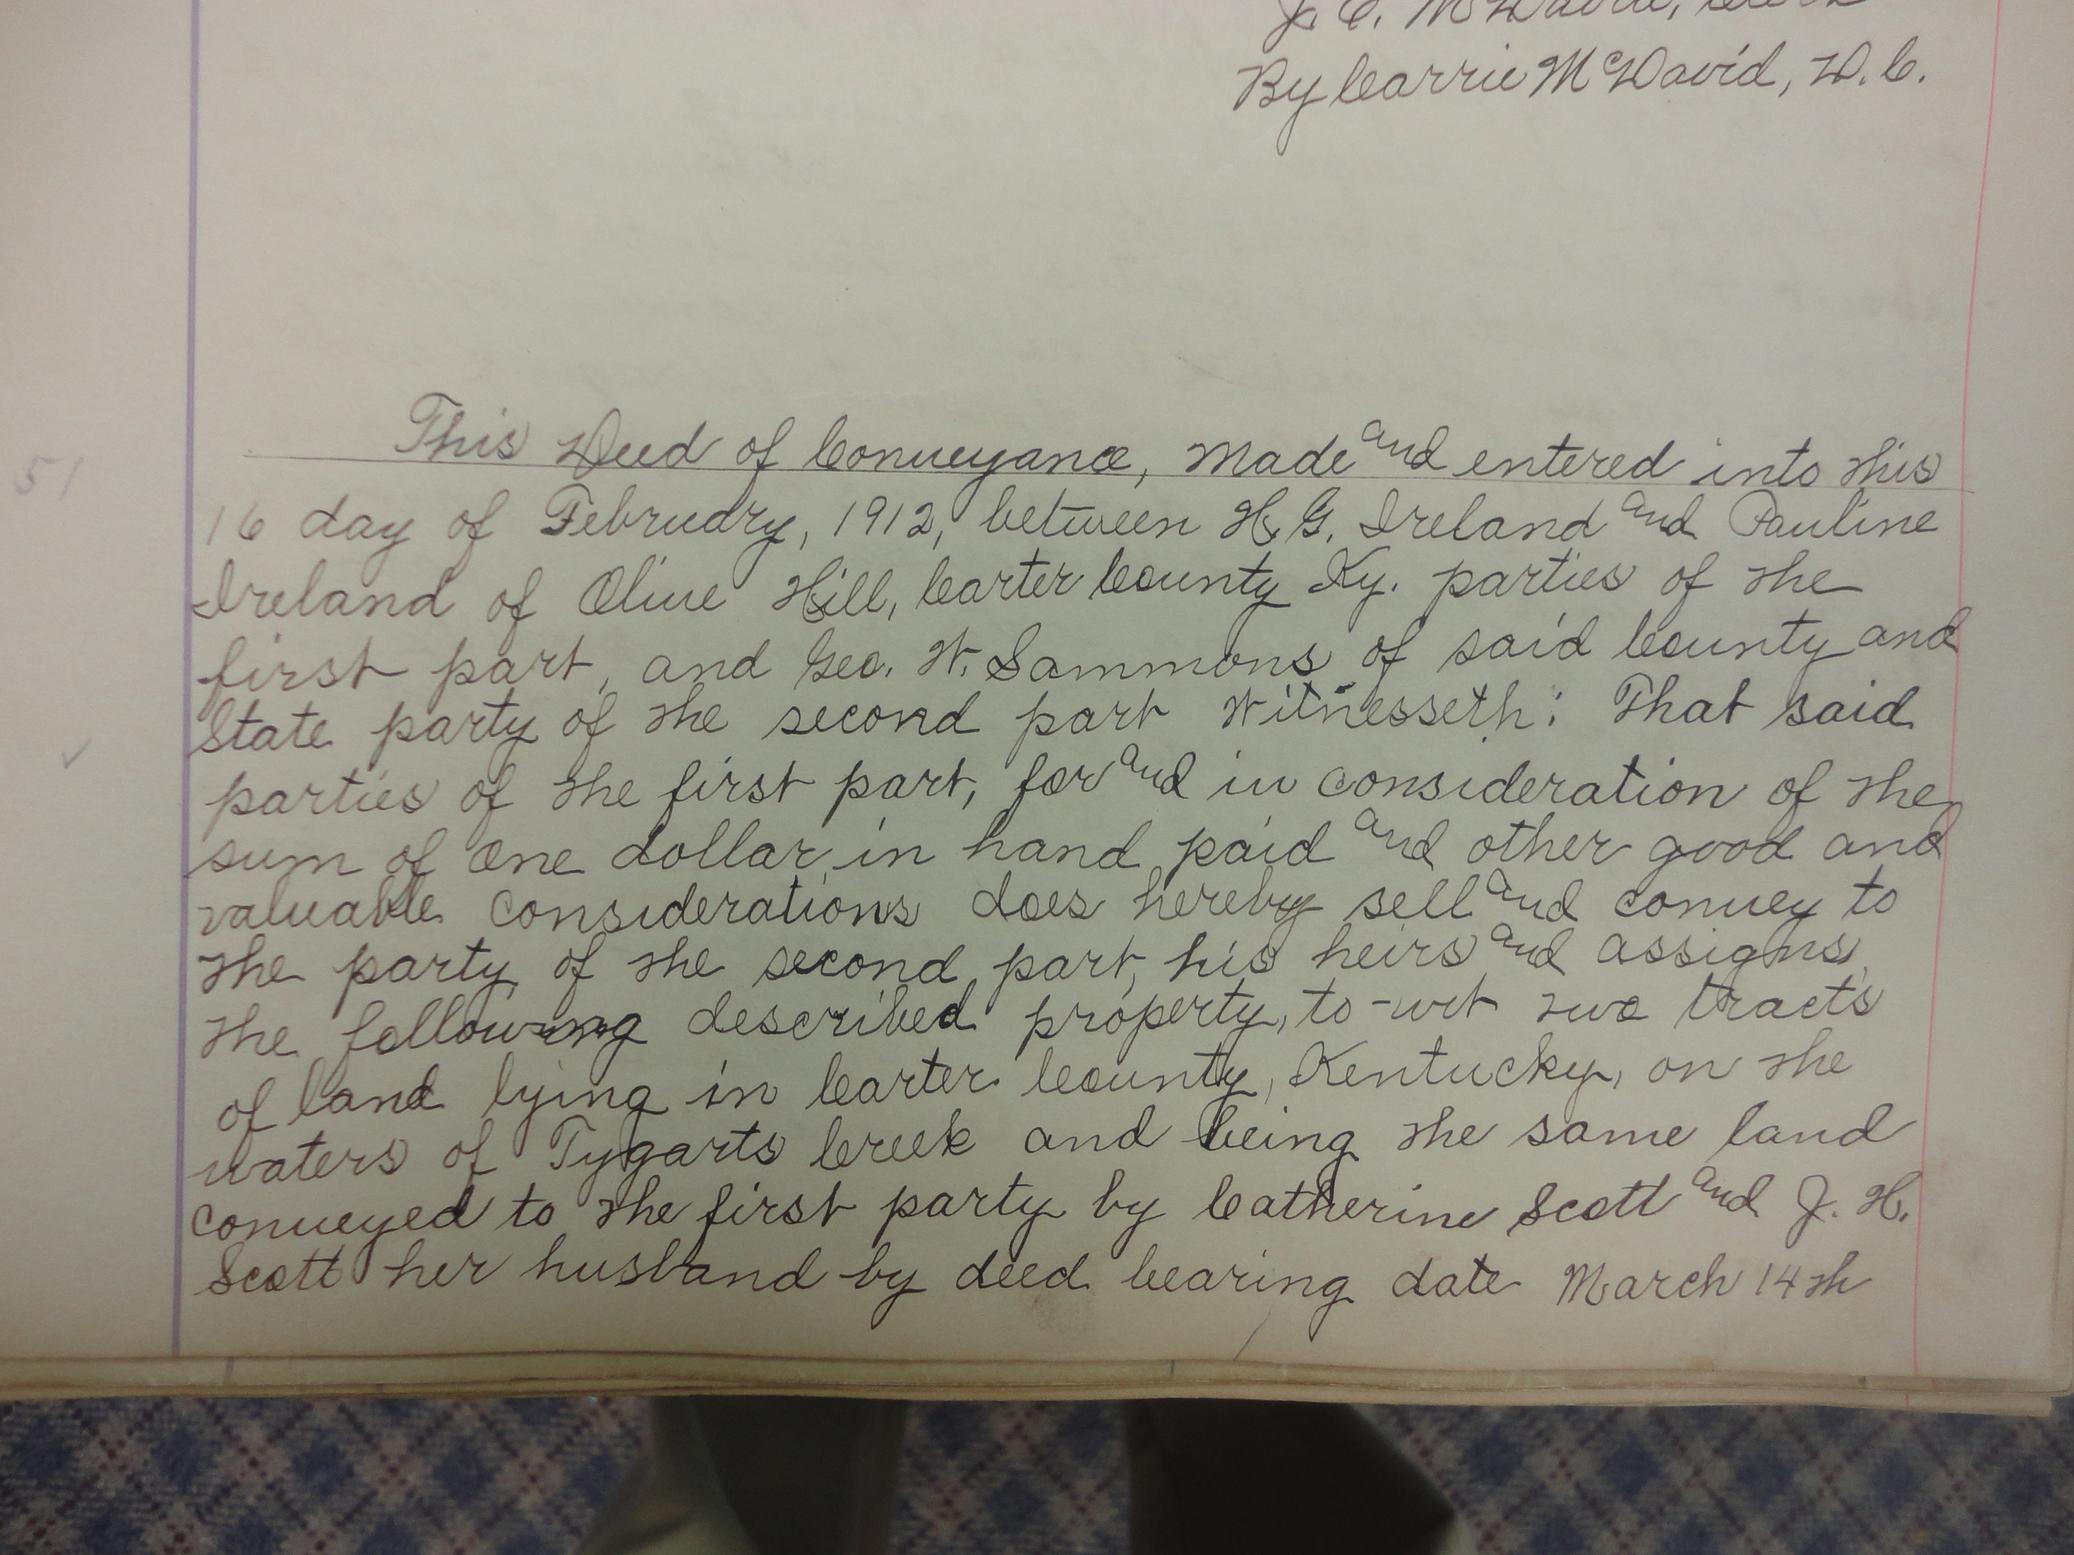 J. C. McDavid, Clerk
By Carrie McDavid, D.C.
This Deed of Conveyance, Made and entered into this
51
16 day of February, 1912, between H.G. Ireland and Pauline
Ireland of Olive Hill, Carter County Ky. parties of the
first part, and Geo. W. Sammons of said County and
State party of the second part Witnesseth: That said
parties of the first part, for and in consideration of the
sum of One dollar, in hand paid and other good and
valuable considerations does hereby sell and convey to
the party of the second part, his heirs and assigns,
the following described property, to-wit two tracts
of land lying in Carter County, Kentucky, on the
waters of Tygarts Creek and being the same land
conveyed to the first party by Catherine Scott and J. H.
Scott her husband by deed bearing date March 14th